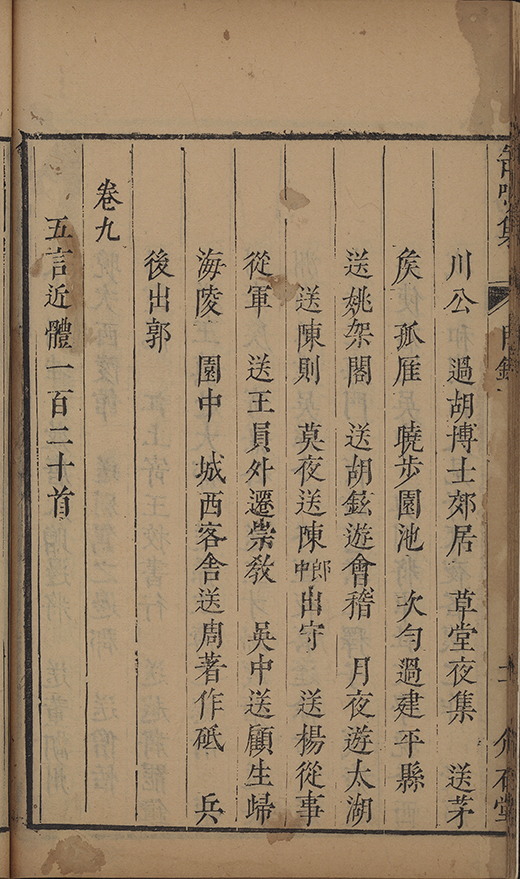 川公 過胡博士郊居 草堂夜集 送茅
矦 孤雁 曉步園池 次勻過建平縣
送姚架閣 送胡鉉遊會稽 月夜遊太湖
送陳則 莫夜送陳郎中出守 送楊從事
從軍 送王員外遷崇教 吳中送顧生歸
海陵 園中 城西客舍送周著作砥 兵
後出郭
卷九
五言近體一百二十首